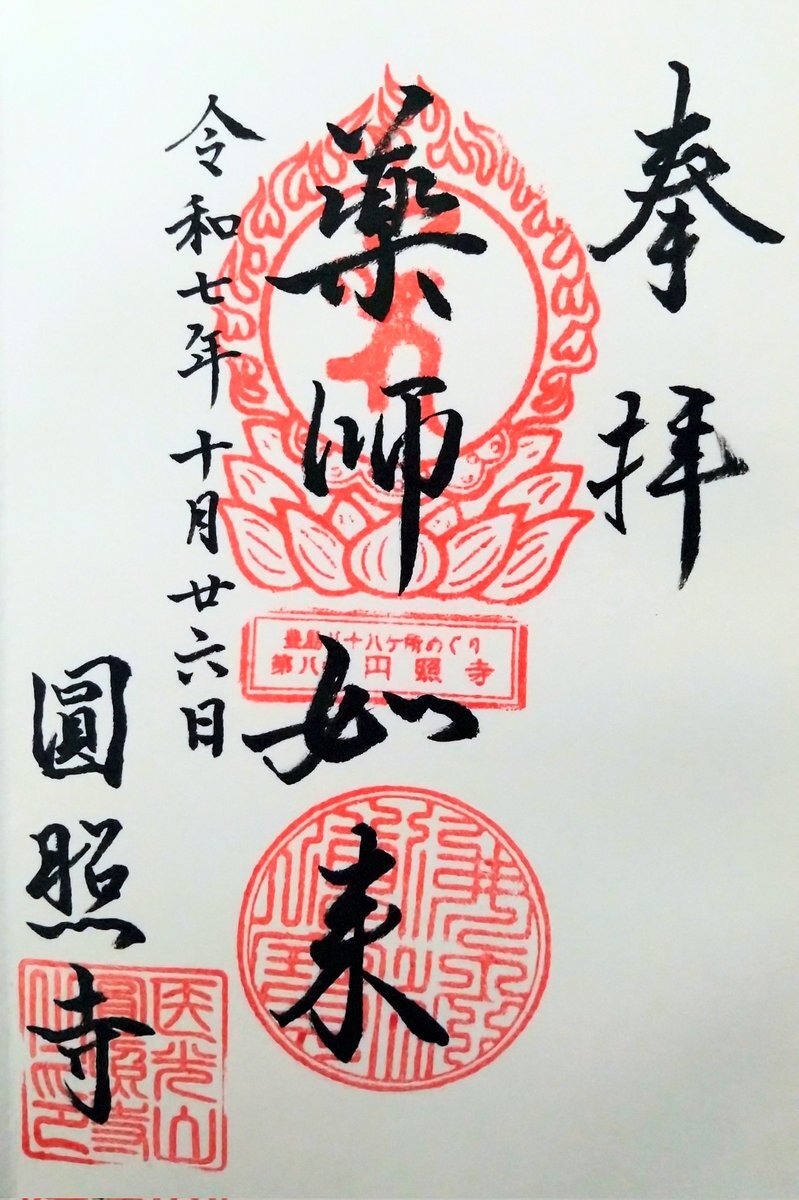 奉拝
薬師如来
豊島八十八ケ所めぐり
第八 円照寺
令和七年十月廿六日
圓照寺
医光山
圓照寺